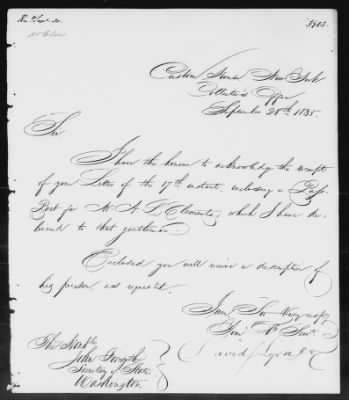 Rec. Sept. 30.
3403.
Custom House New York
Collector's Office
September 28th 1835.
Sir
I have the honour to acknowledge the receipt
of your Letter of the 17th instant, inclosing a Pass-
Port for Mr A. L. Clements, which I have de-
livered to that gentleman.
Enclosed you will receive a description of
his person, as request.
I am Sir Very resply
Your Ob Servt
The Honble
John Forsyth
Secretary of State
Washington